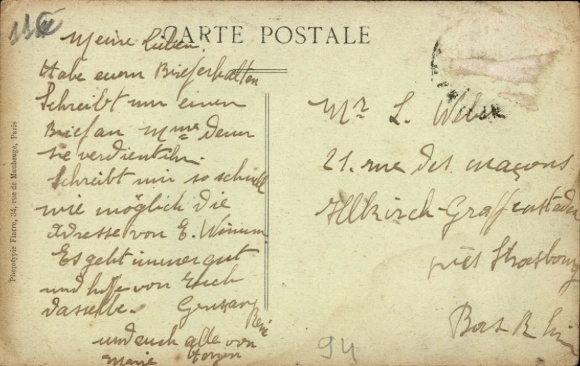 11 €
CARTE POSTALE
Meine lieben.
Habe euern Brief erhalten
Schreibt nur einen
Brief an Mme denn
sie verdient ihn.
Schreibt mir so schnell
wie möglich die
Adresse von E.
Es geht immer gut
und hoffe von Euch
dasselbe.
und euch alle von
Marie
Mr L. Weber
21. rue des maçons
Illkirch-Graffenstaden
près Strasbourg
Bas Rhin
94
Phototypie Fleury, 34, rue de Maubeuge, Paris